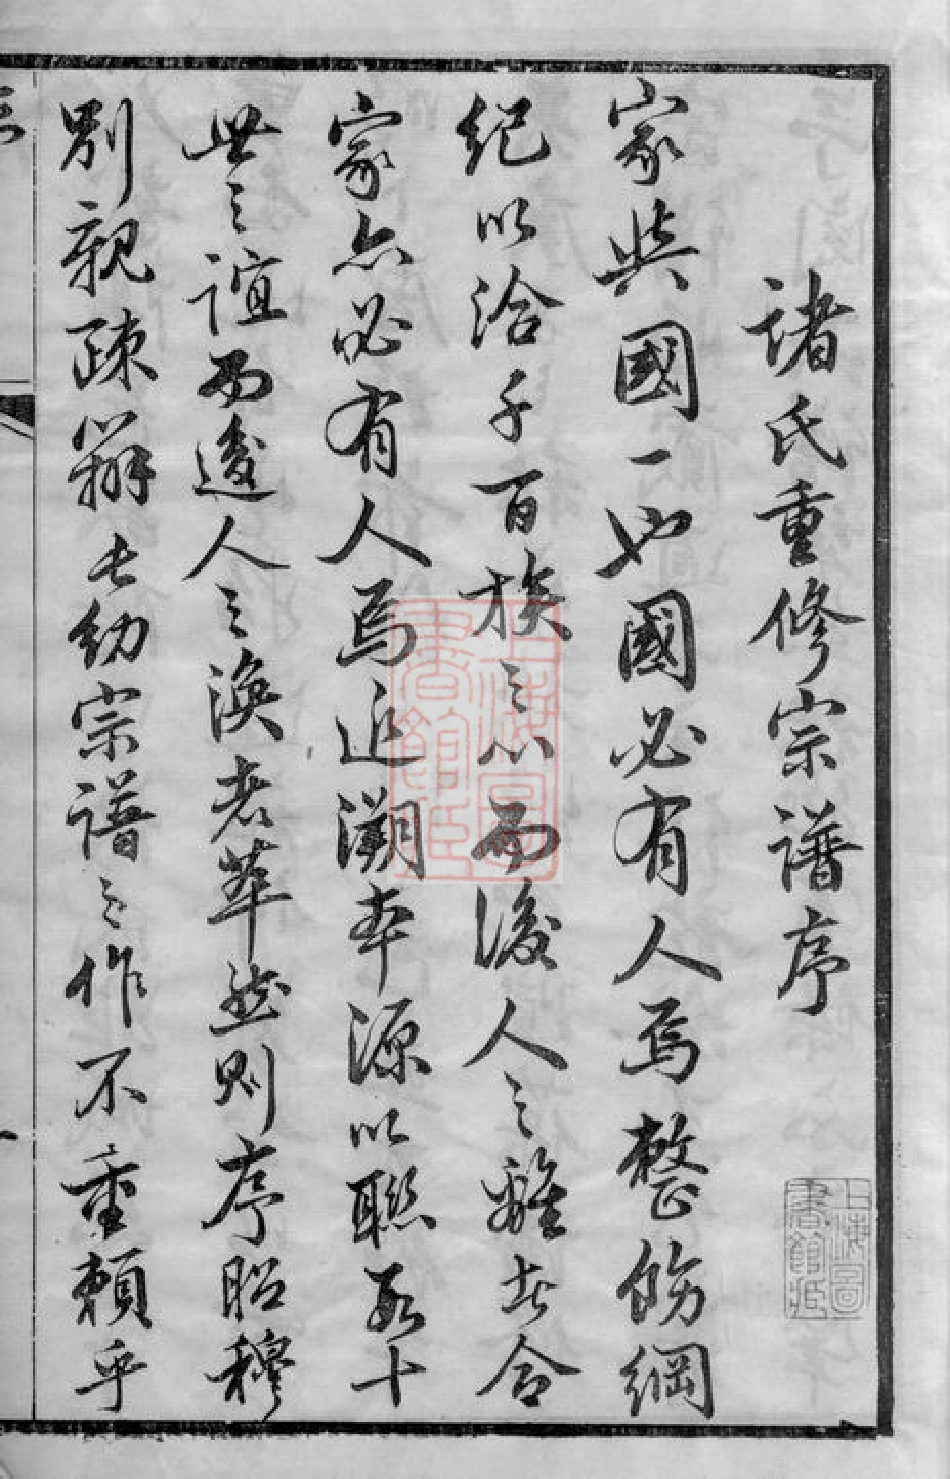 諸氏重修宗譜序
家與國一也國必有人焉整飭綱
紀以洽千百族之心而後人之離者合
家亦必有人焉追溯本源以聯數十
世之誼而後人之渙者萃然則序昭穆
別親疎辨長幼宗譜之作不重賴乎
上海圖書館藏
上海圖書館藏